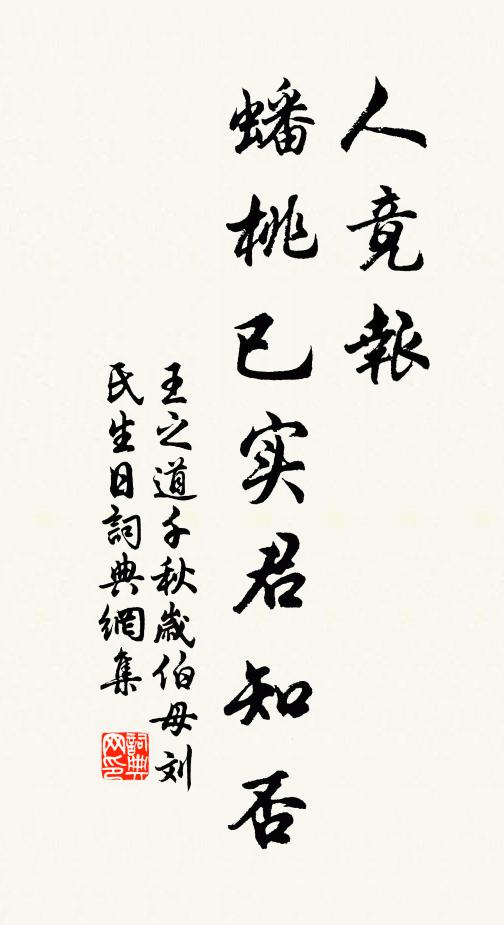 人竟報
蟠桃已实君知否
王之道千秋歲伯母刘
氏生日詞典網集
詞典
网印